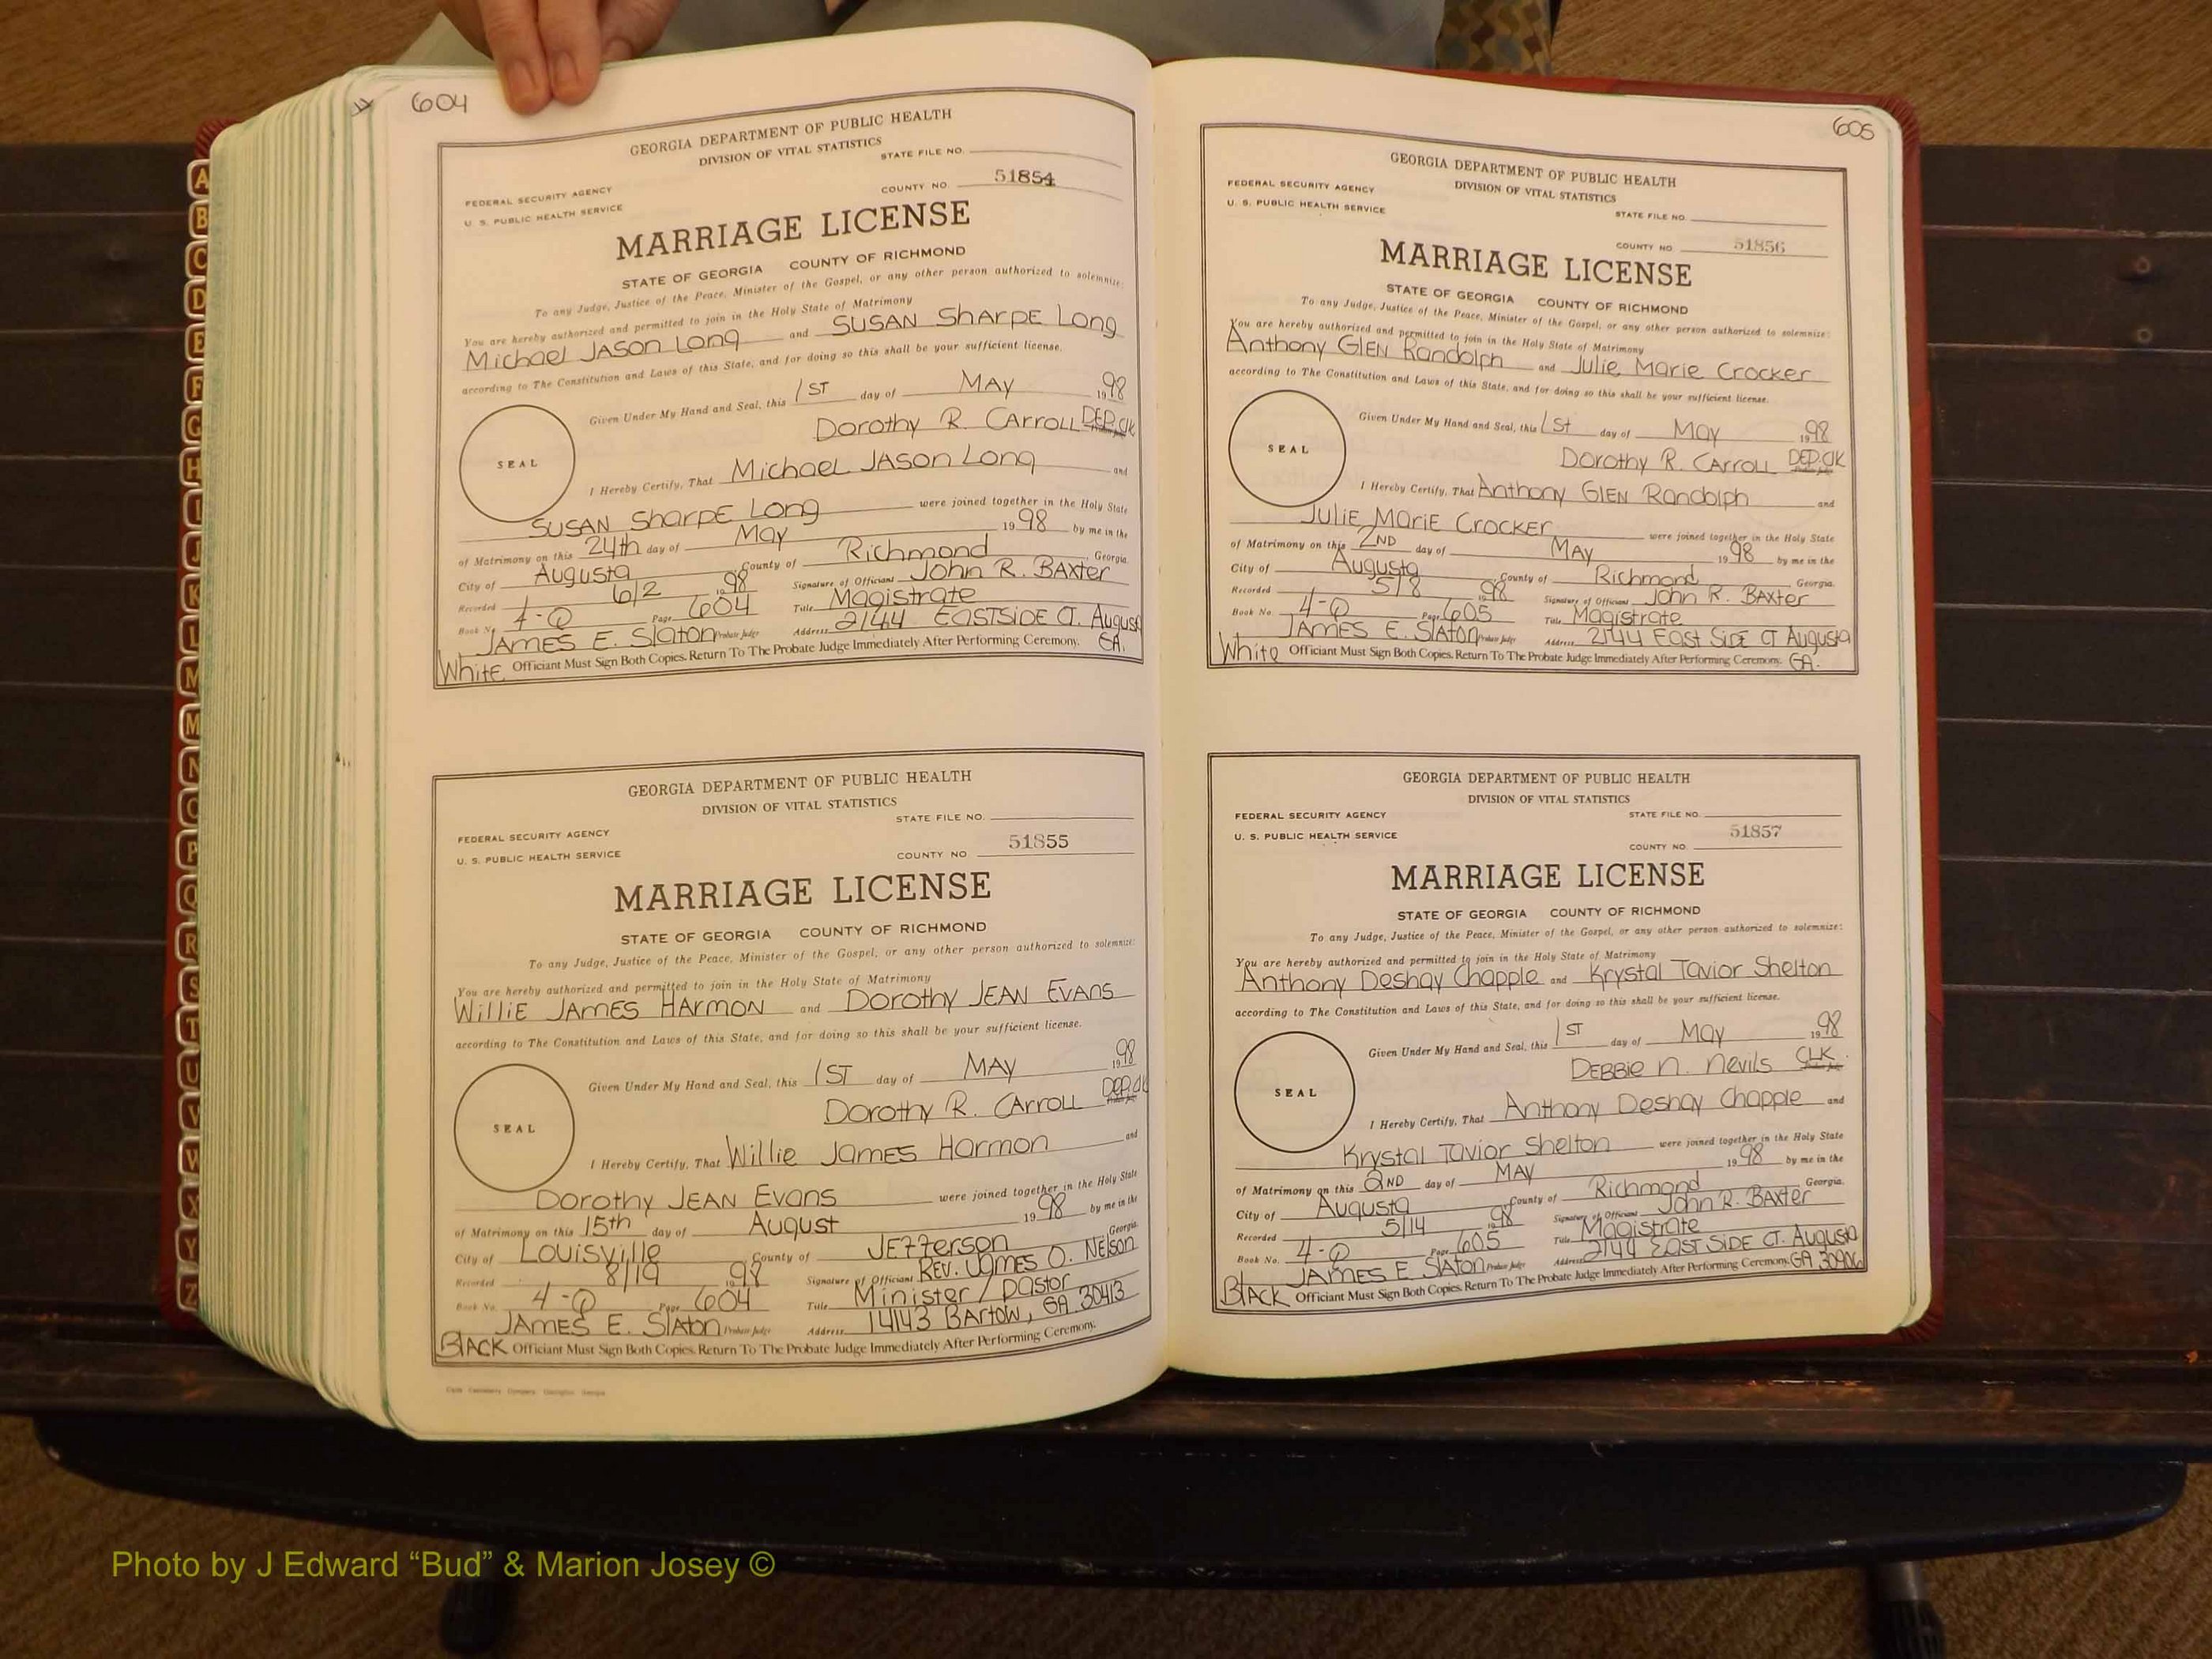 604
GEORGIA DEPARTMENT OF PUBLIC HEALTH
DIVISION OF VITAL STATISTICS
STATE FILE NO.
FEDERAL SECURITY AGENCY
COUNTY NO. 51854
U. S. PUBLIC HEALTH SERVICE
MARRIAGE LICENSE
STATE OF GEORGIA COUNTY OF RICHMOND
To any Judge, Justice of the Peace, Minister of the Gospel, or any other person authorized to solemnize:
You are hereby authorized and permitted to join in the Holy State of Matrimony
Michael JASON Long and SUSAN SharpE Long
according to The Constitution and Laws of this State, and for doing so this shall be your sufficient license.
Given Under My Hand and Seal, this 1ST day of MAY 1998
Dorothy R. CArroLL DEP.Clk
SEAL
I Hereby Certify, That Michael JASON Long and
SUSAN SharpE Long were joined together in the Holy State
of Matrimony on this 24th day of May 1998 by me in the
City of Augusta County of Richmond Georgia.
Recorded 6/2 1998 Signature of Officiant John R. BAxter
Book No. 4-Q Page 604 Title Magistrate
JAMES E. Slaton Probate Judge Address 2144 EASTSIDE CT. Augusta
White Officiant Must Sign Both Copies. Return To The Probate Judge Immediately After Performing Ceremony. GA.
GEORGIA DEPARTMENT OF PUBLIC HEALTH
DIVISION OF VITAL STATISTICS
STATE FILE NO.
FEDERAL SECURITY AGENCY
51855
U. S. PUBLIC HEALTH SERVICE COUNTY NO.
MARRIAGE LICENSE
STATE OF GEORGIA COUNTY OF RICHMOND
To any Judge, Justice of the Peace, Minister of the Gospel, or any other person authorized to solemnize:
You are hereby authorized and permitted to join in the Holy State of Matrimony
WilliE JAMES HArmon and Dorothy JEAN EvAns
according to The Constitution and Laws of this State, and for doing so this shall be your sufficient license.
Given Under My Hand and Seal, this 1ST day of MAY 1998
Dorothy R. CArroll DEP.Clk
SEAL
I Hereby Certify, That Willie JAMES Harmon and
Dorothy JEAN Evans were joined together in the Holy State
of Matrimony on this 15th day of August 1998 by me in the
City of Louisville County of JEfferson Georgia.
Recorded 8/19 1998 Signature of Officiant REV. JAMES O. NElson
Book No. 4-Q Page 604 Title Minister / Pastor
JAMES E. SlAton Probate Judge Address 14143 BArtow, GA 30413
BlACK Officiant Must Sign Both Copies. Return To The Probate Judge Immediately After Performing Ceremony.
605
GEORGIA DEPARTMENT OF PUBLIC HEALTH
DIVISION OF VITAL STATISTICS
FEDERAL SECURITY AGENCY
U. S. PUBLIC HEALTH SERVICE
STATE FILE NO.
COUNTY NO 51856
MARRIAGE LICENSE
STATE OF GEORGIA COUNTY OF RICHMOND
To any Judge, Justice of the Peace, Minister of the Gospel, or any other person authorized to solemnize:
You are hereby authorized and permitted to join in the Holy State of Matrimony
Anthony GlEN Randolph and Julie Marie Crocker
according to The Constitution and Laws of this State, and for doing so this shall be your sufficient license.
Given Under My Hand and Seal, this 1st day of May 1998
Dorothy R. CArroll DEP.Clk
SEAL
I Hereby Certify, That Anthony GlEN Randolph and
JuliE MariE CrockEr were joined together in the Holy State
of Matrimony on this 2ND day of MAY 1998 by me in the
City of Augusta County of Richmond Georgia.
Recorded 5/8 1998 Signature of Officiant John R. BAxter
Book No. 4-Q Page 605 Title Magistrate
JAMES E. SlAton Probate Judge Address 2144 EAst SiDE CT Augusta
White Officiant Must Sign Both Copies. Return To The Probate Judge Immediately After Performing Ceremony. GA.
GEORGIA DEPARTMENT OF PUBLIC HEALTH
DIVISION OF VITAL STATISTICS
FEDERAL SECURITY AGENCY STATE FILE NO.
U. S. PUBLIC HEALTH SERVICE 51857
COUNTY NO.
MARRIAGE LICENSE
STATE OF GEORGIA COUNTY OF RICHMOND
To any Judge, Justice of the Peace, Minister of the Gospel, or any other person authorized to solemnize:
You are hereby authorized and permitted to join in the Holy State of Matrimony
Anthony Deshay Chapple and Krystal Tavior Shelton
according to The Constitution and Laws of this State, and for doing so this shall be your sufficient license.
Given Under My Hand and Seal, this 1ST day of May 1998
DEBBie N. Nevils CLK
SEAL
I Hereby Certify, That Anthony Deshay Chapple and
Krystal Tavior Shelton were joined together in the Holy State
of Matrimony on this 2ND day of MAY 1998 by me in the
City of Augusta County of Richmond Georgia.
Recorded 5/14 1998 Signature of Officiant John R. BAxter
Book No. 4-Q Page 605 Title Magistrate
JAMES E SlAton Probate Judge Address 2144 EAST SIDE CT. Augusta
BlACK Officiant Must Sign Both Copies. Return To The Probate Judge Immediately After Performing Ceremony. GA 30906
A
B
C
D
E
F
G
H
I
J
K
L
M
M
N
O
P
Q
R
S
T
U
V
W
X
Y
Z
Photo by J Edward “Bud” & Marion Josey ©